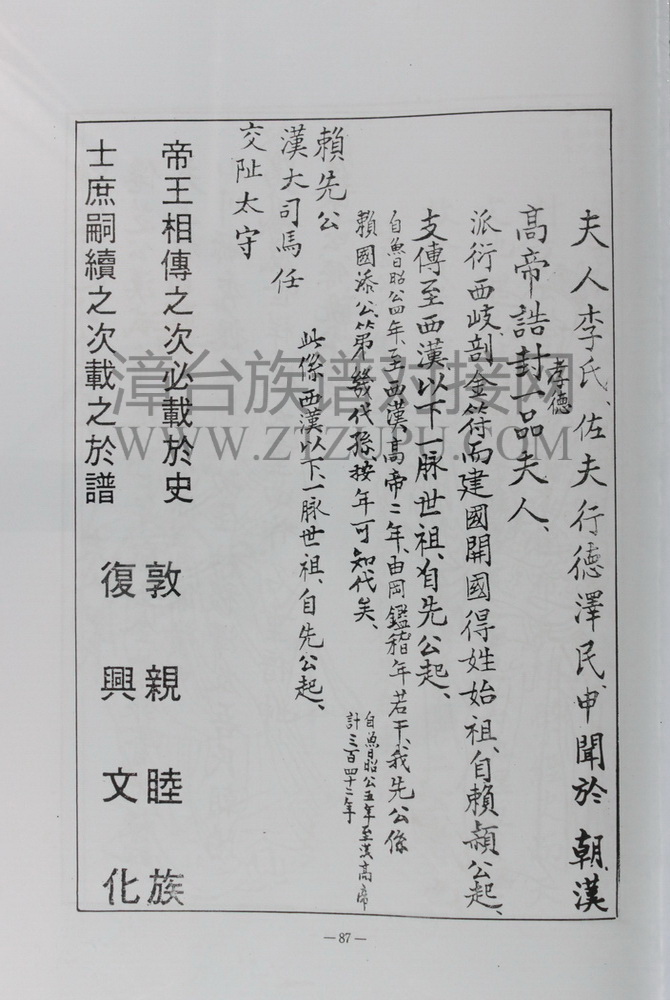 夫人李氏、佐夫行德澤民、申聞於朝漢
高帝誥封一品夫人、
孝德
派衍西岐、剖金符而建國開國得姓始祖、自賴頴公起、
支傳至西漢、以下一脉世祖、自先公起、
自魯昭公四年、至西漢高帝二年、由岡鑑稽年若干、我先公係
賴國添公第幾代孫、按年可知代矣、
自魯昭公五年至漢高帝
計三百四十二年
此係西漢以下、一脉世祖、自先公起、
賴先公
漢大司馬任
交阯太守
帝王相傳之次必載於史
士庶嗣續之次載之於譜
敦親睦族
復興文化
漳台族谱对接网
WWW.ZTZUPU.COM
—87—